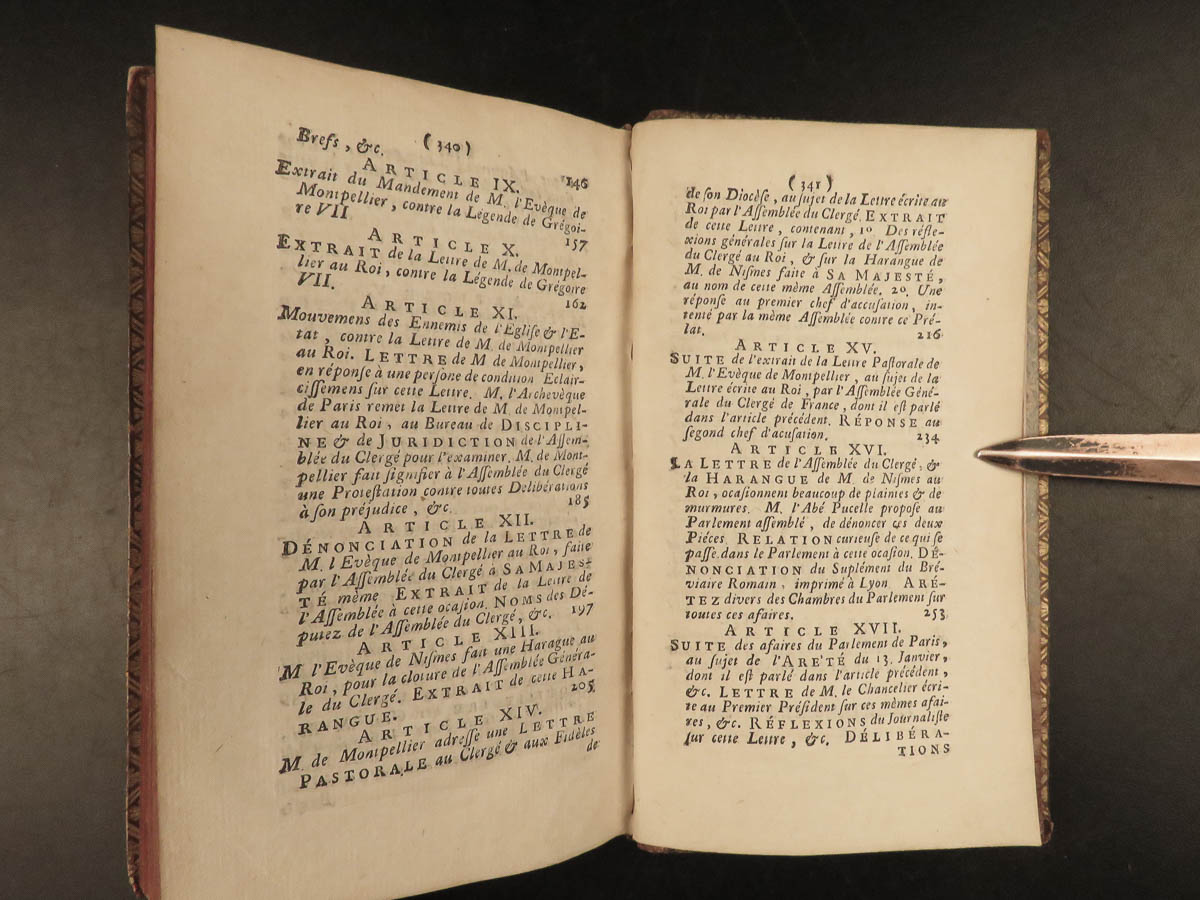 (340)
Brefs, &c. 146
ARTICLE IX.
Extrait du Mandement de M. l'Evèque de
Montpellier, contre la Légende de Grégoi-
re VII 157
ARTICLE X.
EXTRAIT de la Lettre de M. de Montpel-
lier au Roi, contre la Légende de Grégoire
VII. 162
ARTICLE XI.
Mouvemens des Ennemis de l'Eglise & l'E-
tat, contre la Lettre de M. de Montpellier
au Roi. LETTRE de M de Montpellier,
en réponse à une persone de condition Eclair-
cissemens sur cette Lettre. M. l'Archevèque
de Paris remet la Lettre de M. de Montpel-
lier au Roi, au Bureau de DISCIPLI-
NE & de JURIDICTION de l'Assem-
blée du Clergé pour l'examiner. M. de Mont-
pellier fait signifier à l'Assemblée du Clergé
une Protestation contre toutes Delibérations
à son préjudice, &c. 185
ARTICLE XII.
DÉNONCIATION de la LETTRE de
M. l Evèque de Montpellier au Roi, faite
par l'Assemblée du Clergé à SA MAJES-
TÉ même EXTRAIT de la Lettre de
l'Assemblée à cette ocasion. NOMS des Dé-
putez de l'Assemblée du Clergé, &c. 197
ARTICLE XIII.
M l'Evèque de Nismes fait une Harague au
Roi, pour la cloture de l'Assemblée Généra-
le du Clergé. EXTRAIT de cette HA-
RANGUE. 205
ARTICLE XIV.
M. de Montpellier adresse une LETTRE
PASTORALE au Clergé & aux Fidèles
de
(341)
de son Diocèse, au sujet de la Lettre écrite au
Roi par l'Assemblée du Clergé. EXTRAIT
de cette Lettre, contenant, 10. Des réfle-
xions générales sur la Lettre de l'Assemblée
du Clergé au Roi, & sur la Harangue de
M. de Nismes faite à SA MAJESTÉ,
au nom de cette même Assemblée. 20. Une
réponse au premier chef d'accusation, in-
tenté par la mème Assemblée contre ce Pré-
lat. 216
ARTICLE XV.
SUITE de l'extrait de la Lettre Pastorale de
M. l'Evèque de Montpellier, au sujet de la
Lettre écrite au Roi, par l'Assemblée Géné-
rale du Clergé de France, dont il est parlé
dans l'article précédent. RÉPONSE au
segond chef d'acusation. 234
ARTICLE XVI.
LA LETTRE de l'Assemblée du Clergé, &
la HARANGUE de M. de Nismes au
Roi, ocasionnent beaucoup de plaintes & de
murmures. M. l'Abé Pucelle propose au
Parlement assemblé, de dénoncer ces deux
Piéces. RELATION curieuse de ce qui se
passe dans le Parlement à cette ocasion. DÉ-
NONCIATION du Suplément du Bré-
viaire Romain, imprimé à Lyon. ARÉ-
TEZ divers des Chambres du Parlement sur
toutes ces afaires. 253
ARTICLE XVII.
SUITE des afaires du Parlement de Paris,
au sujet de l'ARE'TÉ du 13. Janvier,
dont il est parlé dans l'article précédent,
&c. LETTRE de M. le Chancelier écri-
te au Premier Président sur ces mêmes afai-
res, &c. RÉFLEXIONS du Journaliste
sur cette Lettre, &c. DÉLIBÉRA-
TIONS